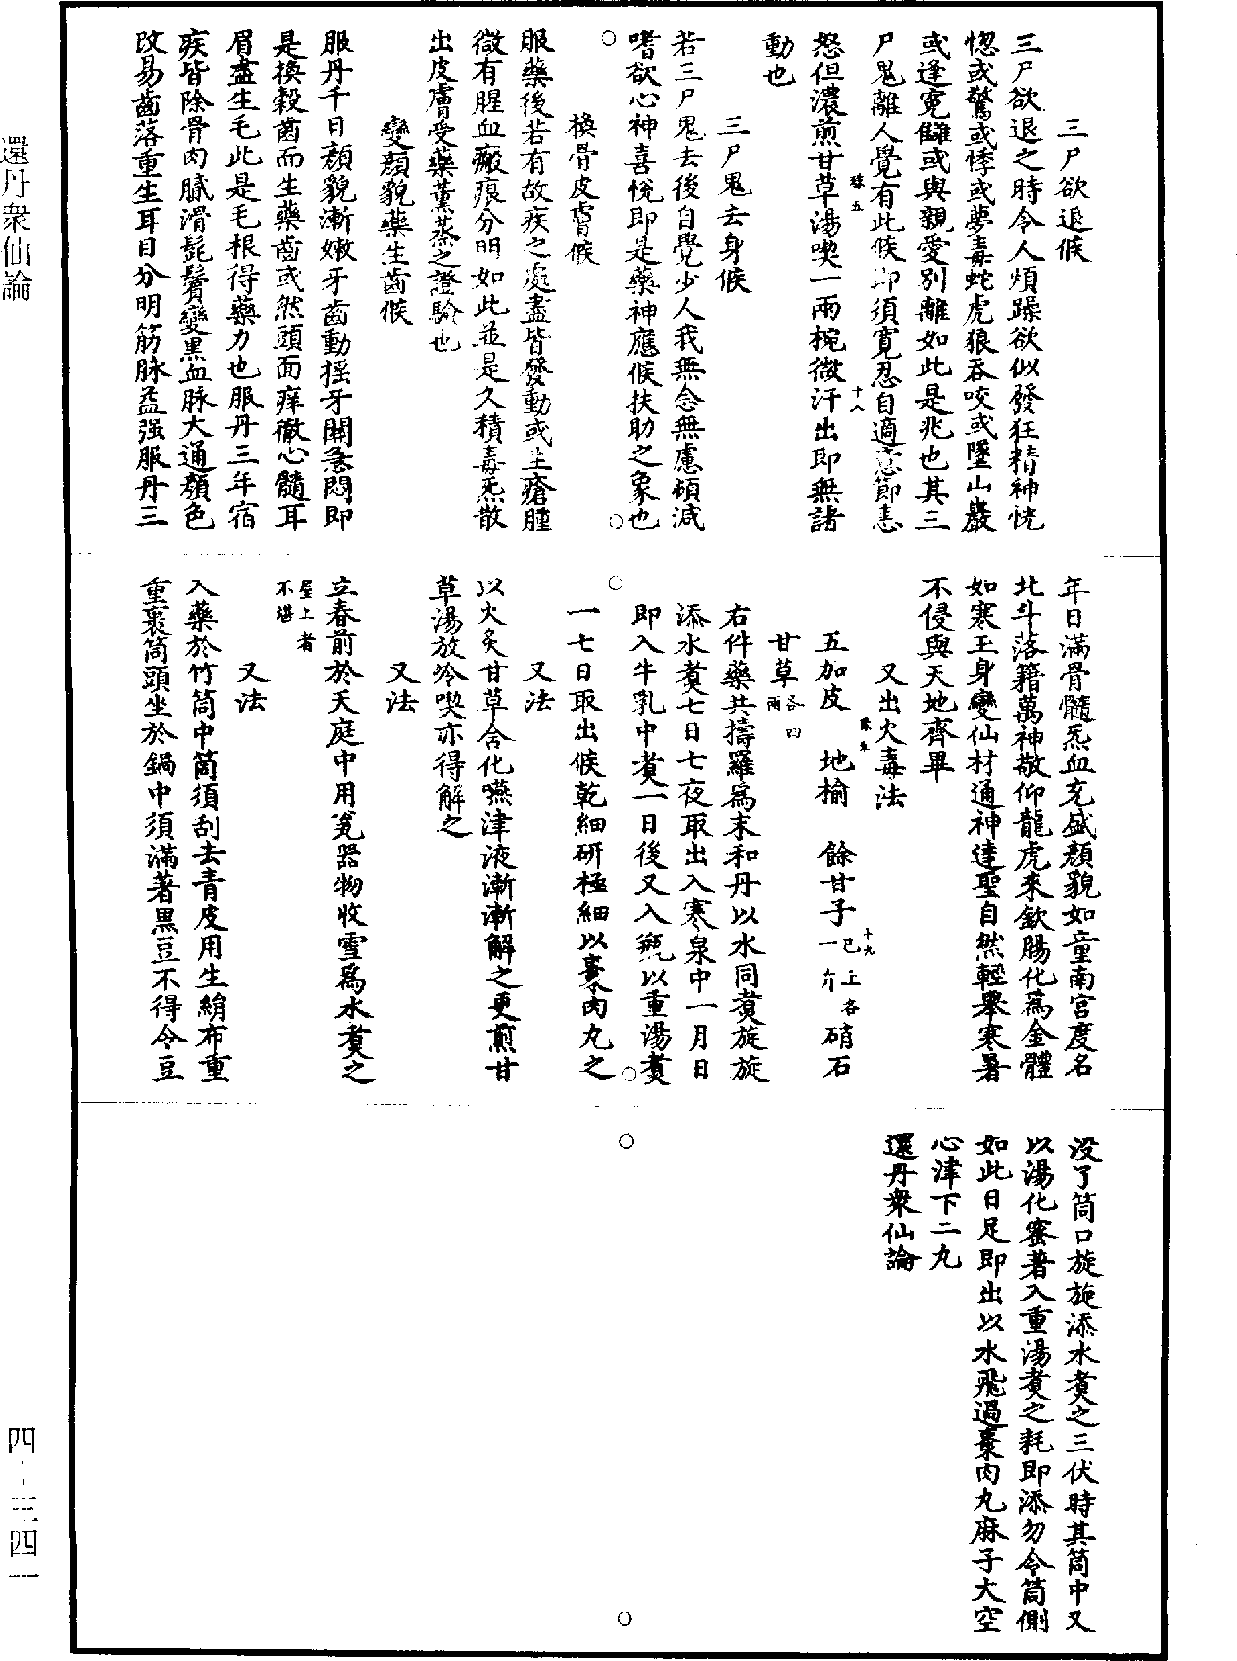 三尸欲退候
三尸欲退之時令人煩躁欲似發狂精神恍
惚或驚或悸或夢毒蛇虎狼吞咬或墜山巖
或逢冤讎或與親愛別離如此是兆也其三
尸鬼離人覺有此候即須寬忍自適意節恚
怒但濃煎甘草湯喫一兩椀微汗出即無諸
動也
三尸鬼去身候
若三尸鬼去後自覺少人我無念無慮頓減
嗜欲心神喜悅即是藥神應候扶助之象也
換骨皮膚候
服藥後若有故疾之處盡皆發動或生瘡腫
微有腥血瘢痕分明如此並是久積毒炁散
出皮膚受藥薰蒸之證驗也
變顏貌藥生齒候
服丹千日顏貌漸嫩牙齒動搖牙關急悶即
是換穀齒而生藥齒或然頭面痒徹心髓耳
眉盡生毛此是毛根得藥力也服丹三年宿
疾皆除骨肉膩滑髭鬢變黑血脉大通顏色
改易齒落重生耳目分明筋脉益强服丹三
年日滿骨髓炁血充盛顏貌如童南宮度名
北斗落籍萬神敬仰龍虎來欽腸化爲金體
如寒玉身變仙材通神達聖自然輕舉寒暑
不侵與天地齊畢
又出火毒法
五加皮 地榆 餘甘子已上各一斤 硝石
甘草各四兩
右件藥共擣羅爲末和丹以水同煑旋旋
添水煑七日七夜取出入寒泉中一月日
即入牛乳中煑一日後又入甑以重湯煑
一七日取出候乾細研極細以棗肉丸之
又法
以火炙甘草含化嚥津液漸漸解之更煎甘
草湯放冷喫亦得解之
又法
立春前於天庭中用瓷器物收雪爲水煑之
屋上者不堪
又法
入藥於竹筒中筒須刮去青皮用生絹布重
重裹筒頭坐於鍋中須滿著黑豆不得令豆
沒了筒口旋旋添水煑之三伏時其筒中又
以湯化蜜著入重湯煑之耗即添勿令筒側
如此日足即出以水飛過棗肉丸麻子大空
心津下二丸
還丹衆仙論
還丹衆仙論
四-三四一
十八
十九